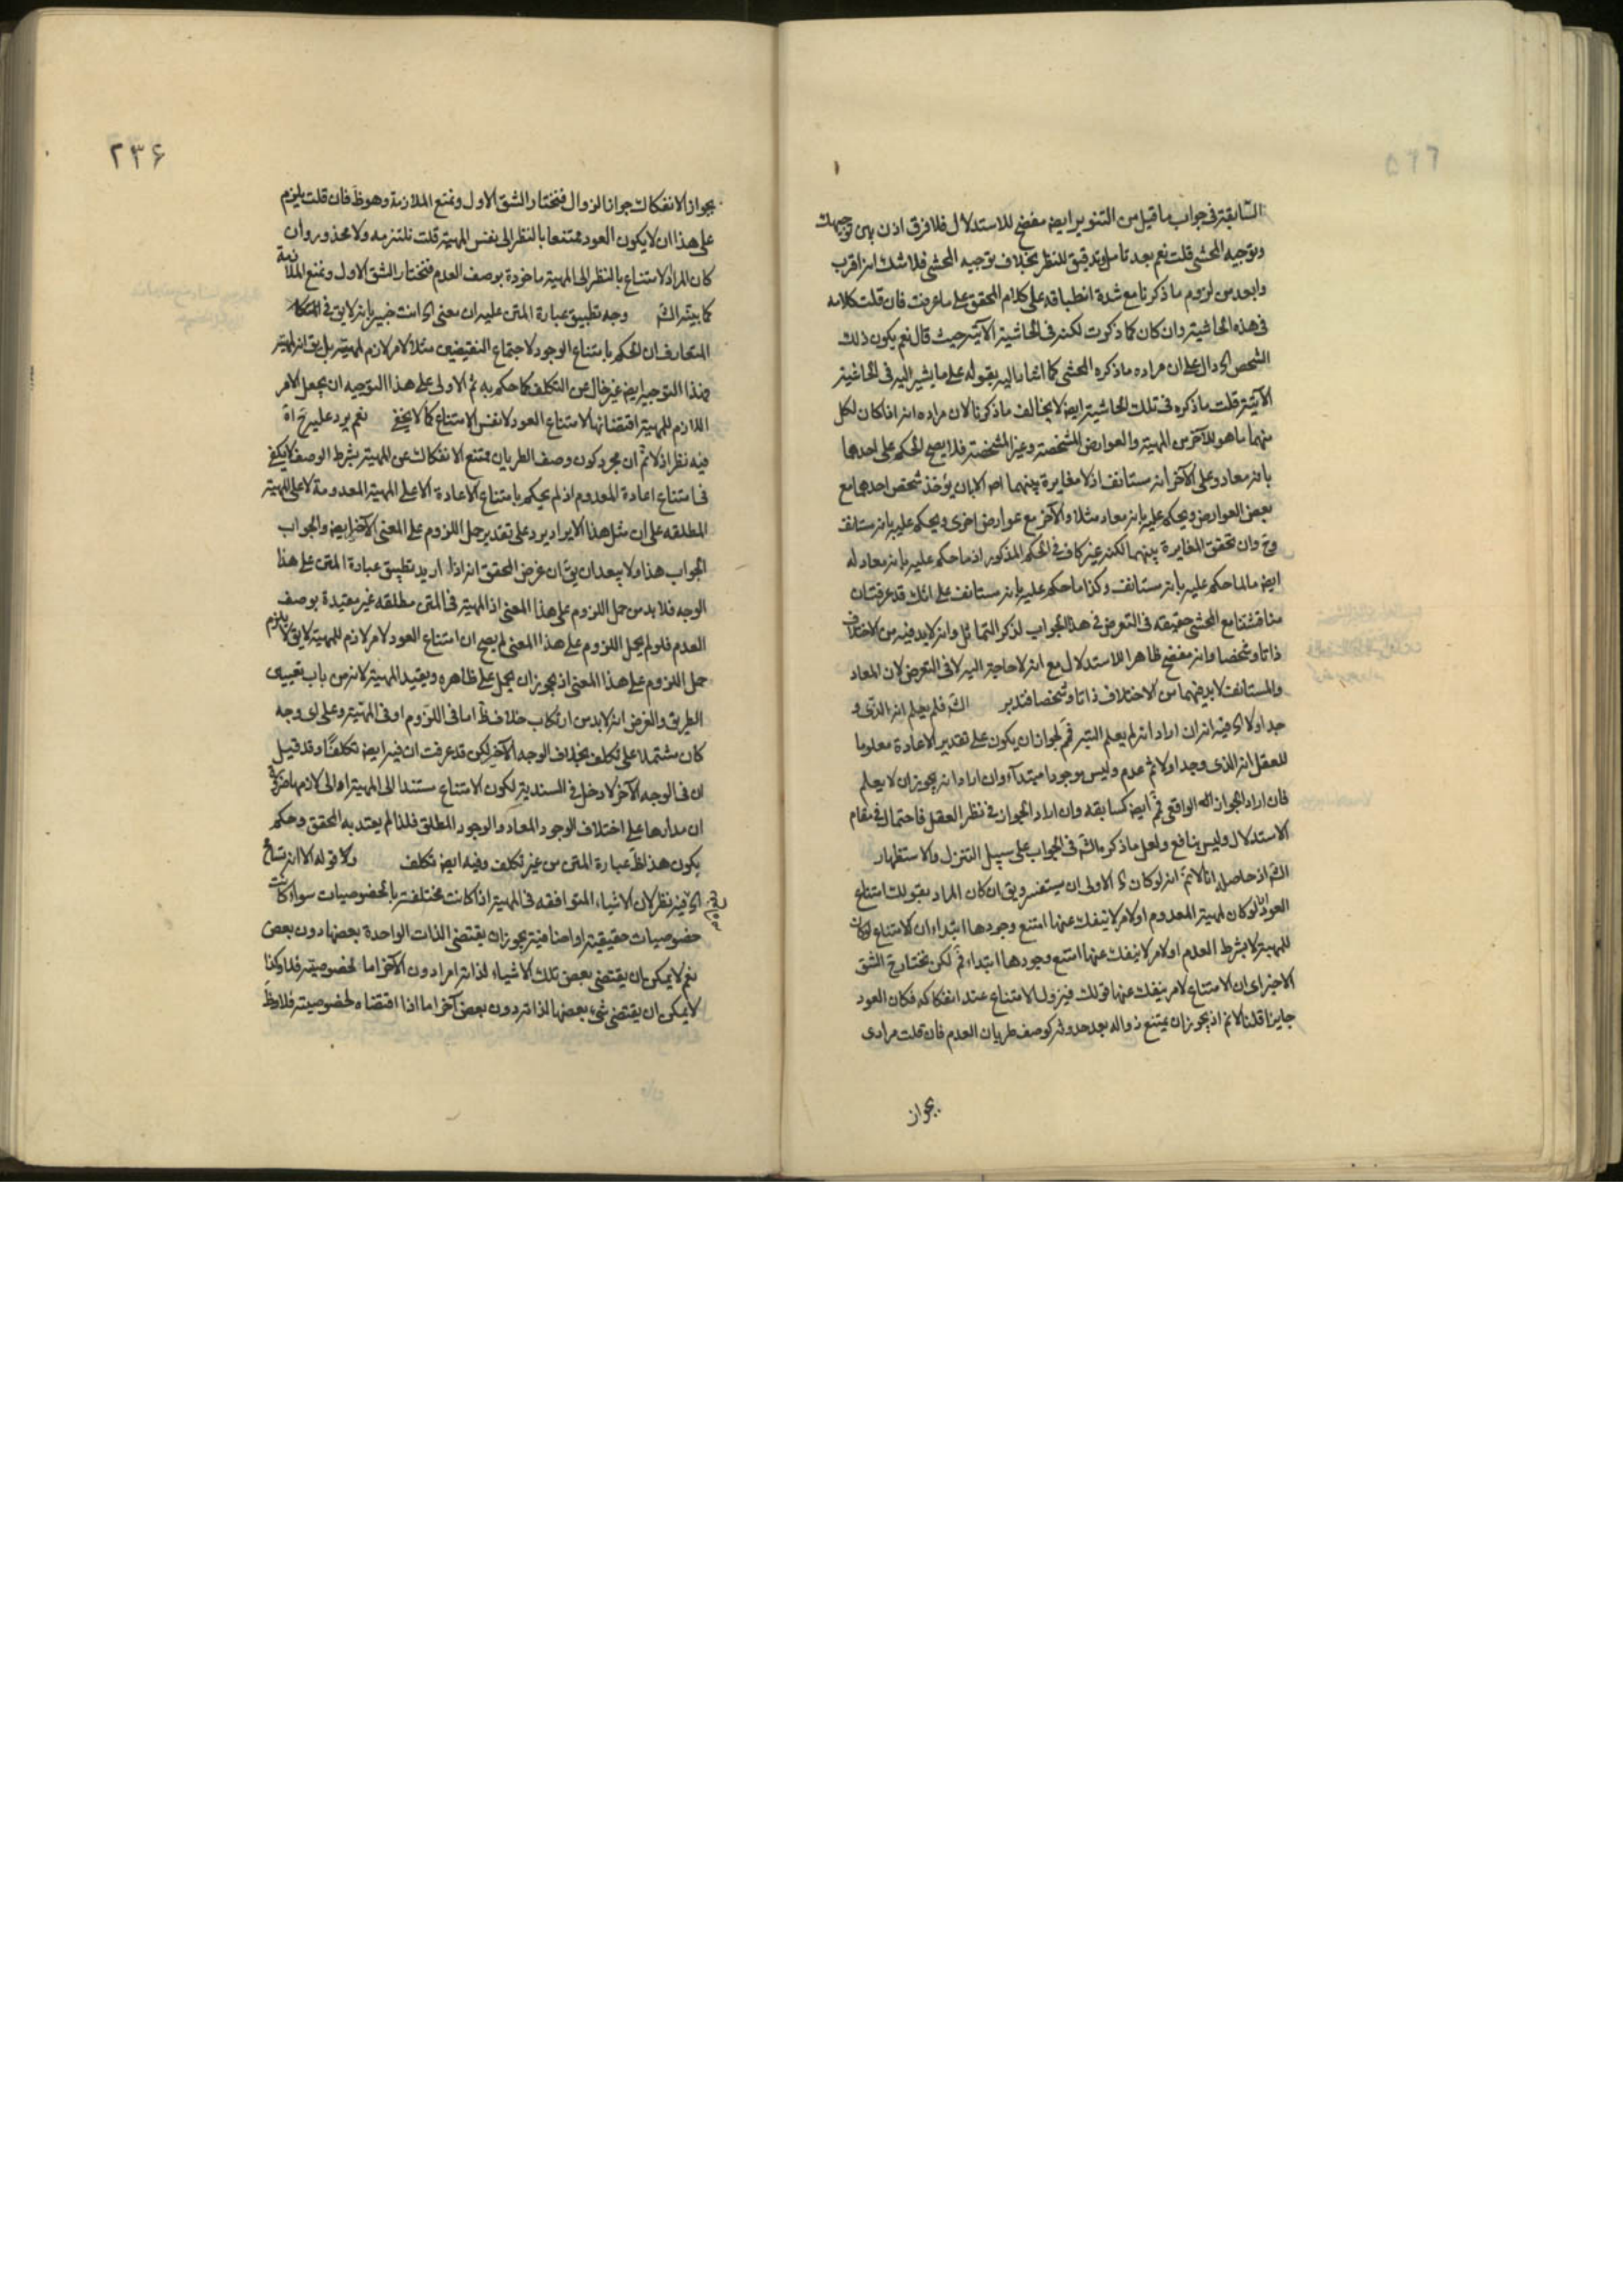 السابقة في جواب ما قيل من التنوير ايضه مفضح للاستدلال فلا فرق اذن بين توجيهك
وتوجيه المحشي قلت نعم بعد تامل وتدقيق للنظر بخلاف توجيه المحشي فلا شك انه اقرب
وابعد من لزوم ما ذكرنا مع شدة انطباقه على كلام المحقق على ما عرفت فان قلت كلامه
في هذه الحاشية وان كان كما ذكرت لكنه في الحاشية الآتية حيث قال نعم يكون ذلك
الشخص اه دال على ان مراده ما ذكره المحشي كما اشار اليه بقوله على ما يشير اليه في الحاشية
الآتية قلت ما ذكره في تلك الحاشية ايضه لا يخالف ما ذكرنا لان مراده انه اذا كان لكل
منهما ما هو للآخر من المهية والعوارض المشخصة وغير المشخصة فلا يصح الحكم على احدهما
بانه معاد وعلى الآخر انه مستانف اذ لا مغايرة بينهما اصلا الا بان يؤخذ شخص احدهما مع
بعض العوارض ويحكم عليه بانه معاد مثلا والآخر مع عوارض اخرى ويحكم عليه بانه مستانف
وح وان تحقق المغايرة بينهما لكنه غير كاف في الحكم المذكور اذ ما حكم عليه بانه معاد له
ايضه ما لما حكم عليه بانه مستانف وكذا ما حكم عليه بانه مستانف على انك قد عرفت ان
مناقشتنا مع المحشي حقيقة في التعرض في هذا الجواب لذكر التماثل وانه لا بد فيه من الاختلاف
ذاتا وشخصا وانه مفضح ظاهرا للاستدلال مع انه لا حاجة اليه لا في التعرض لان المعاد
والمستانف لا بد بينهما من الاختلاف ذاتا وشخصا فتدبر الش فلم يعلم انه الذي و
جد اولا اه فيه انه ان اراد انه لم يعلم البتة فم لجواز ان يكون على تقدير الاعادة معلوما
للعقل انه الذي وجد اولا ثم عدم وليس موجودا مبتدآ وان اراد انه يجوز ان لا يعلم
فان اراد الجواز الواقعي فم ايضه كسابقه وان اراد الجواز في نظر العقل فاحتمال في مقام
الاستدلال وليس بنافع ولعل ما ذكره الش في الجواب على سبيل التنزل والاستظهار
الش اذ حاصله انا لا نم انه لو كان اه الاولى ان يستفسر ويق ان كان المراد بقولك امتناع
العود لو كان لمهية المعدوم او لامر لا ينفك عنها امتنع وجودها ابتداء ان الامتناع لو كان
للمهية لا بشرط العدم او لامر لا ينفك عنها امتنع وجودها ابتداء فم لكن نختار ح الشق
الاخير اي ان الامتناع لامر ينفك عنها قولك فيزول الامتناع عند انفكاكه فكان العود
جايزا قلنا لا نم اذ يجوز ان يمتنع زواله بعد حدوثه كوصف طريان العدم فان قلت مرادي
بجواز
٢٣۶
بجواز الانفكاك جواز الزوال فنختار الشق الاول ونمنع الملازمة وهو ظ فان قلت يلزم
على هذا ان لا يكون العود ممتنعا بالنظر الى نفس المهية قلت نلتزمه ولا محذور وان
كان المراد الامتناع بالنظر الى المهية ماخوذة بوصف العدم فنختار الشق الاول ونمنع الملازمة
كما بينه الش وجه تطبيق عبارة المتن عليه ان معنى اه انت خبير بانه لا يق في
المتعارف ان الحكم بامتناع الوجود لاجتماع النقيضين مثلا لامر لازم لمهيته بل يق انه لمهيته
فهذا التوجيه ايضه غير خال عن التكلف كما حكم به ثم الاولى على هذا التوجيه ان يجعل الامر
اللازم للمهية اقتضائها لامتناع العود لا نفس الامتناع كما لا يخفى نعم يرد عليه ح اه
فيه نظر اذ لا نم ان مجرد كون وصف الطريان ممتنع الانفكاك عن المهية بشرط الوصف لا يكفي
في امتناع اعادة المعدوم اذ لم يحكم بامتناع الاعادة الا على المهية المعدومة لا على المهية
المطلقه على ان مثل هذا الايراد يرد على تقدير حمل اللزوم على المعنى الآخر ايضه والجواب
الجواب هذا ولا يبعد ان يق ان غرض المحقق انه اذا اريد تطبيق عبارة المتن على هذا
الوجه فلا بد من حمل اللزوم على هذا المعنى اذ المهية في المتن مطلقه غير مقيدة بوصف
العدم فلو لم يحمل اللزوم على هذا المعنى لم يصح ان امتناع العود لامر لازم للمهية لا يق لا يلزم
حمل اللزوم على هذا المعنى اذ يجوز ان يحمل على ظاهره ويقيد المهية لانه من باب تعيين
الطريق والغرض انه لا بد من ارتكاب خلاف ظ اما في اللزوم او في المهية وعلى اي وجه
كان مشتملا على تكلف بخلاف الوجه الآخر لكن قد عرفت ان فيه ايضه تكلفا وقد قيل
ان في الوجه الآخر لا دخل في السندية لكون الامتناع مستندا الى المهية او الى لازمها ضرورة
ان مدارها على اختلاف الوجود المعاد والوجود المطلق فلذا لم يعتد به المحقق وحكم
بكون هذا ظ عبارة المتن من غير تكلف وفيه ايضه تكلف ولا قوله الا انه تسامح
اه فيه نظر لان الاشياء المتوافقه في المهية اذا كانت مختلفة بالخصوصيات سواء كانت
خصوصيات حقيقية او اضافية يجوز ان يقتضي الذات الواحدة بعضها دون بعض
نعم لا يمكن ان يقتضي بعض تلك الاشياء لذاته امرا دون الآخر اما لخصوصيته فلا وكذا
لا يمكن ان يقتضي شيء بعضها لذاته دون بعض آخر اما اذا اقتضاه لخصوصيته فلا وظ